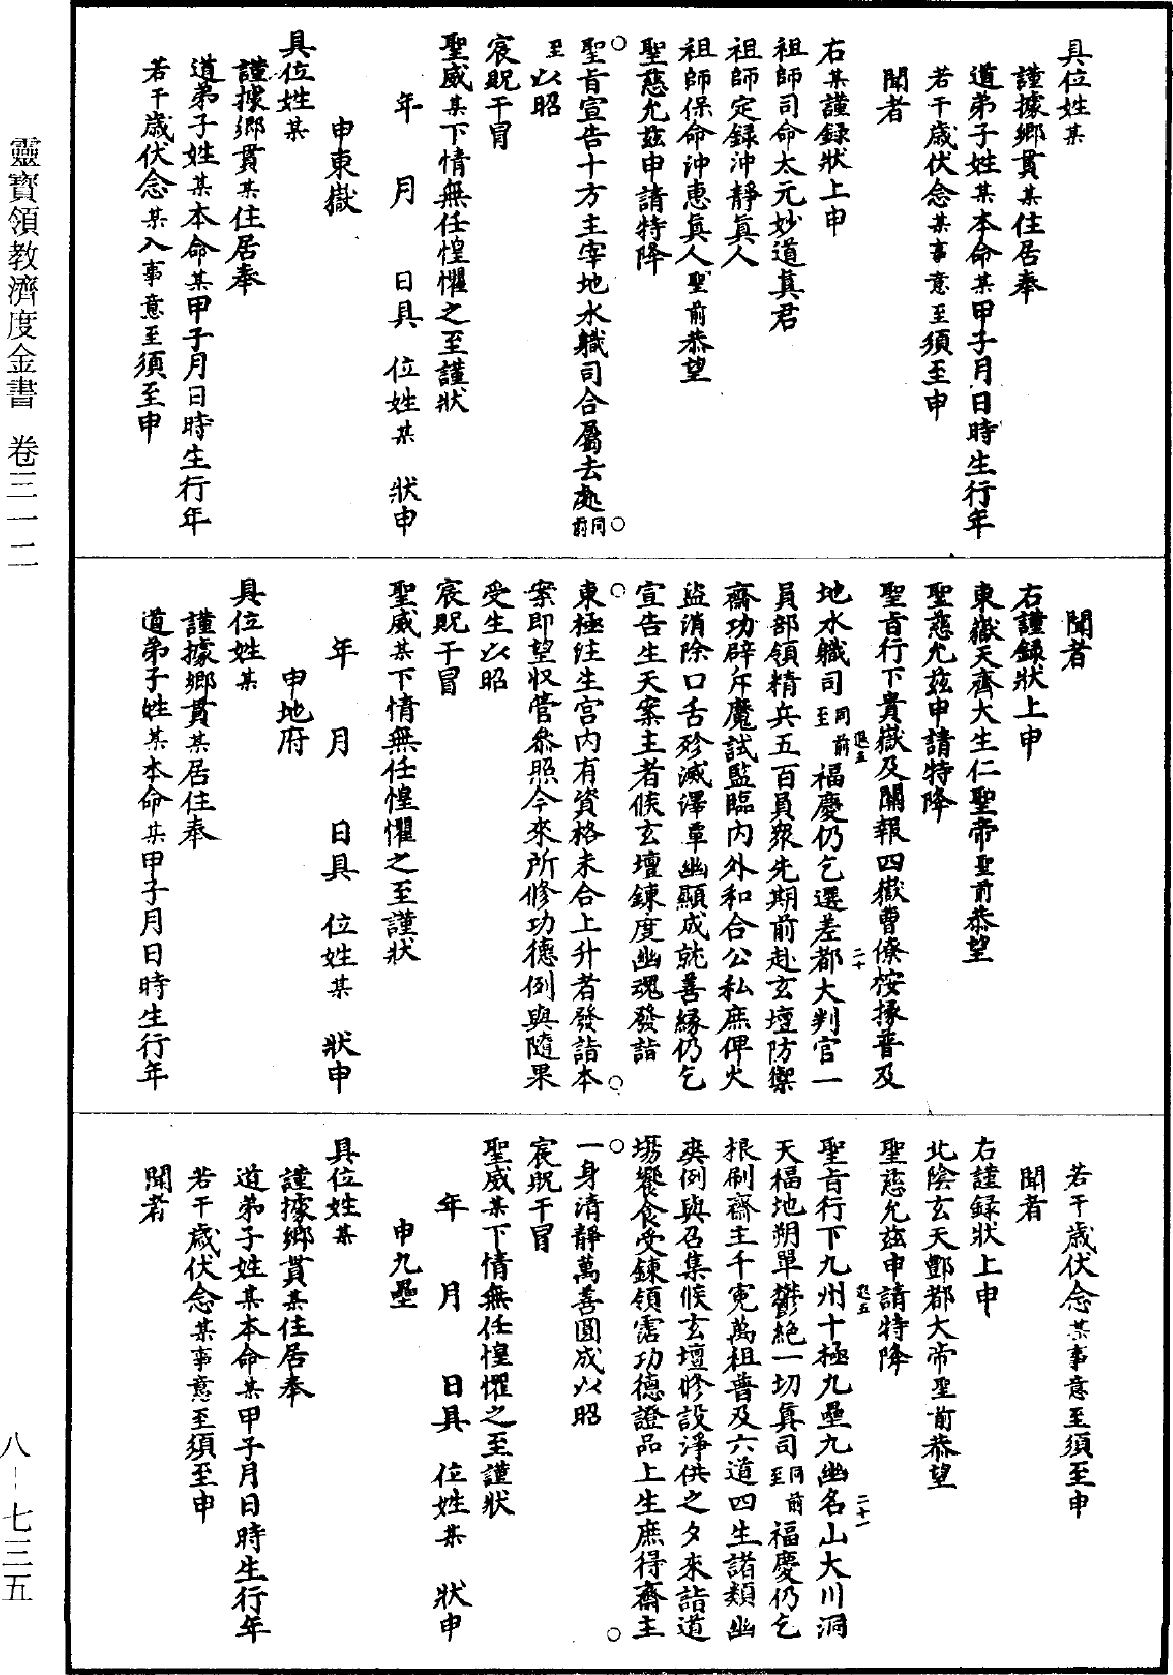 具位姓某
謹據鄉貫某住居奉
道弟子姓某本命某甲子月日時生行年
若干歲伏念某事意至須至申
聞者
右某謹錄狀上申
祖師司命太元妙道真君
祖師定錄沖靜真人
祖師保命沖惠真人聖前恭望
聖慈允茲申請特降
聖旨宣告十方主宰地水職司合屬去處同前
至以昭
宸貺干冒
聖威某下情無任惶懼之至謹狀
年 月 日具 位姓某 狀申
申東嶽
具位姓某
謹據鄉貫某住居奉
道弟子姓某本命某甲子月日時生行年
若干歲伏念某入事意至須至申
聞者
右謹錄狀上申
東嶽天齊大生仁聖帝聖前恭望
聖慈允茲申請特降
聖旨行下貴嶽及關報四嶽曹僚桉掾普及
地水職司同前至福慶仍乞選差都大判官一
員部領精兵五百員衆先期前赴玄壇防禦
齋功辟斥魔試監臨內外和合公私庶俾火
盜消除口舌殄滅澤覃幽顯成就善緣仍乞
宣告生天案主者候玄壇鍊度幽魂發詣
東極往生宮內有資格未合上升者發詣本
案即望收管叅照今來所修功德例與隨果
受生以昭
宸貺干冒
聖威某下情無任惶懼之至謹狀
年 月 日具 位姓某 狀申
申地府
具位姓某
謹據鄉貫某居住奉
道弟子姓某本命某甲子月日時生行年
若干歲伏念某事意至須至申
聞者
右謹錄狀上申
北陰玄天酆都大帝聖前恭望
聖慈允茲申請特降
聖旨行下九州十極九壘九幽名山大川洞
天福地朔單鬱絕一切真司同前至福慶仍乞
根刷齋主千冤萬祖普及六道四生諸類幽
爽例與召集候玄壇修設淨供之夕來詣道
場饗食受鍊領霑功德證品上生庶得齋主
一身清靜萬善圓成以昭
宸貺干冒
聖威某下情無任惶懼之至謹狀
年 月 日具 位姓某 狀申
申九壘
具位姓某
謹據鄉貫某住居奉
道弟子姓某本命某甲子月日時生行年
若干歲伏念某事意至須至申
聞者
靈寶領教濟度金書 卷三一二
八–七三五